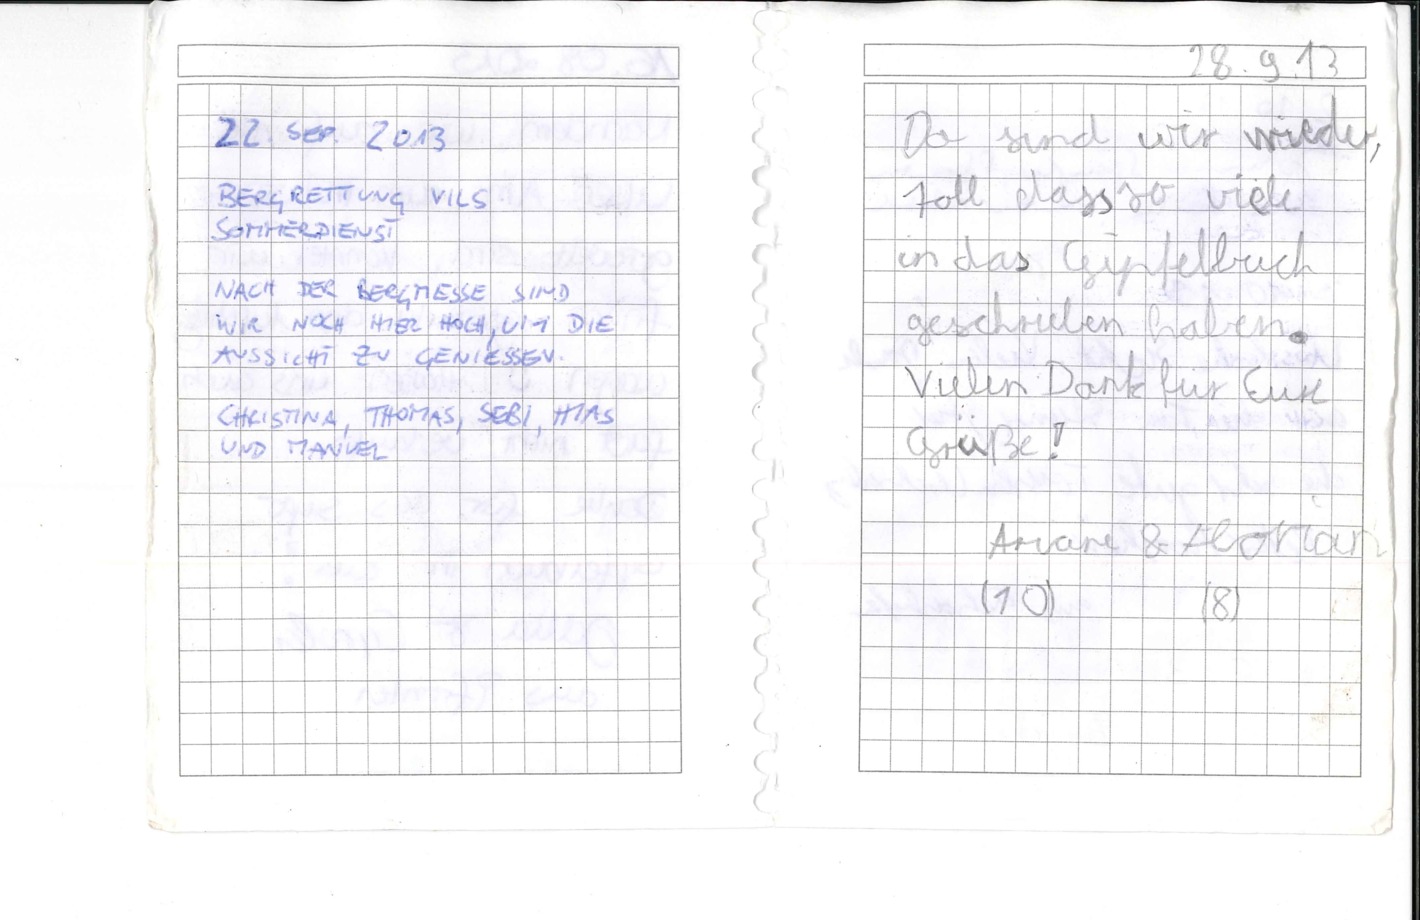 22. SEP. 2013
BERGRETTUNG VILS
SOMMERDIENST
NACH DER BERGMESSE SIND
WIR NOCH HIER HOCH, UM DIE
AUSSICHT ZU GENIESSEN.
CHRISTINA, THOMAS, SEBI, HIAS
UND MANUEL
28.9.13
Da sind wir wieder,
toll dass so viele
in das Gipfelbuch
geschrieben haben.
Vielen Dank für Eure
Grüße!
& Florian
(10) (8)